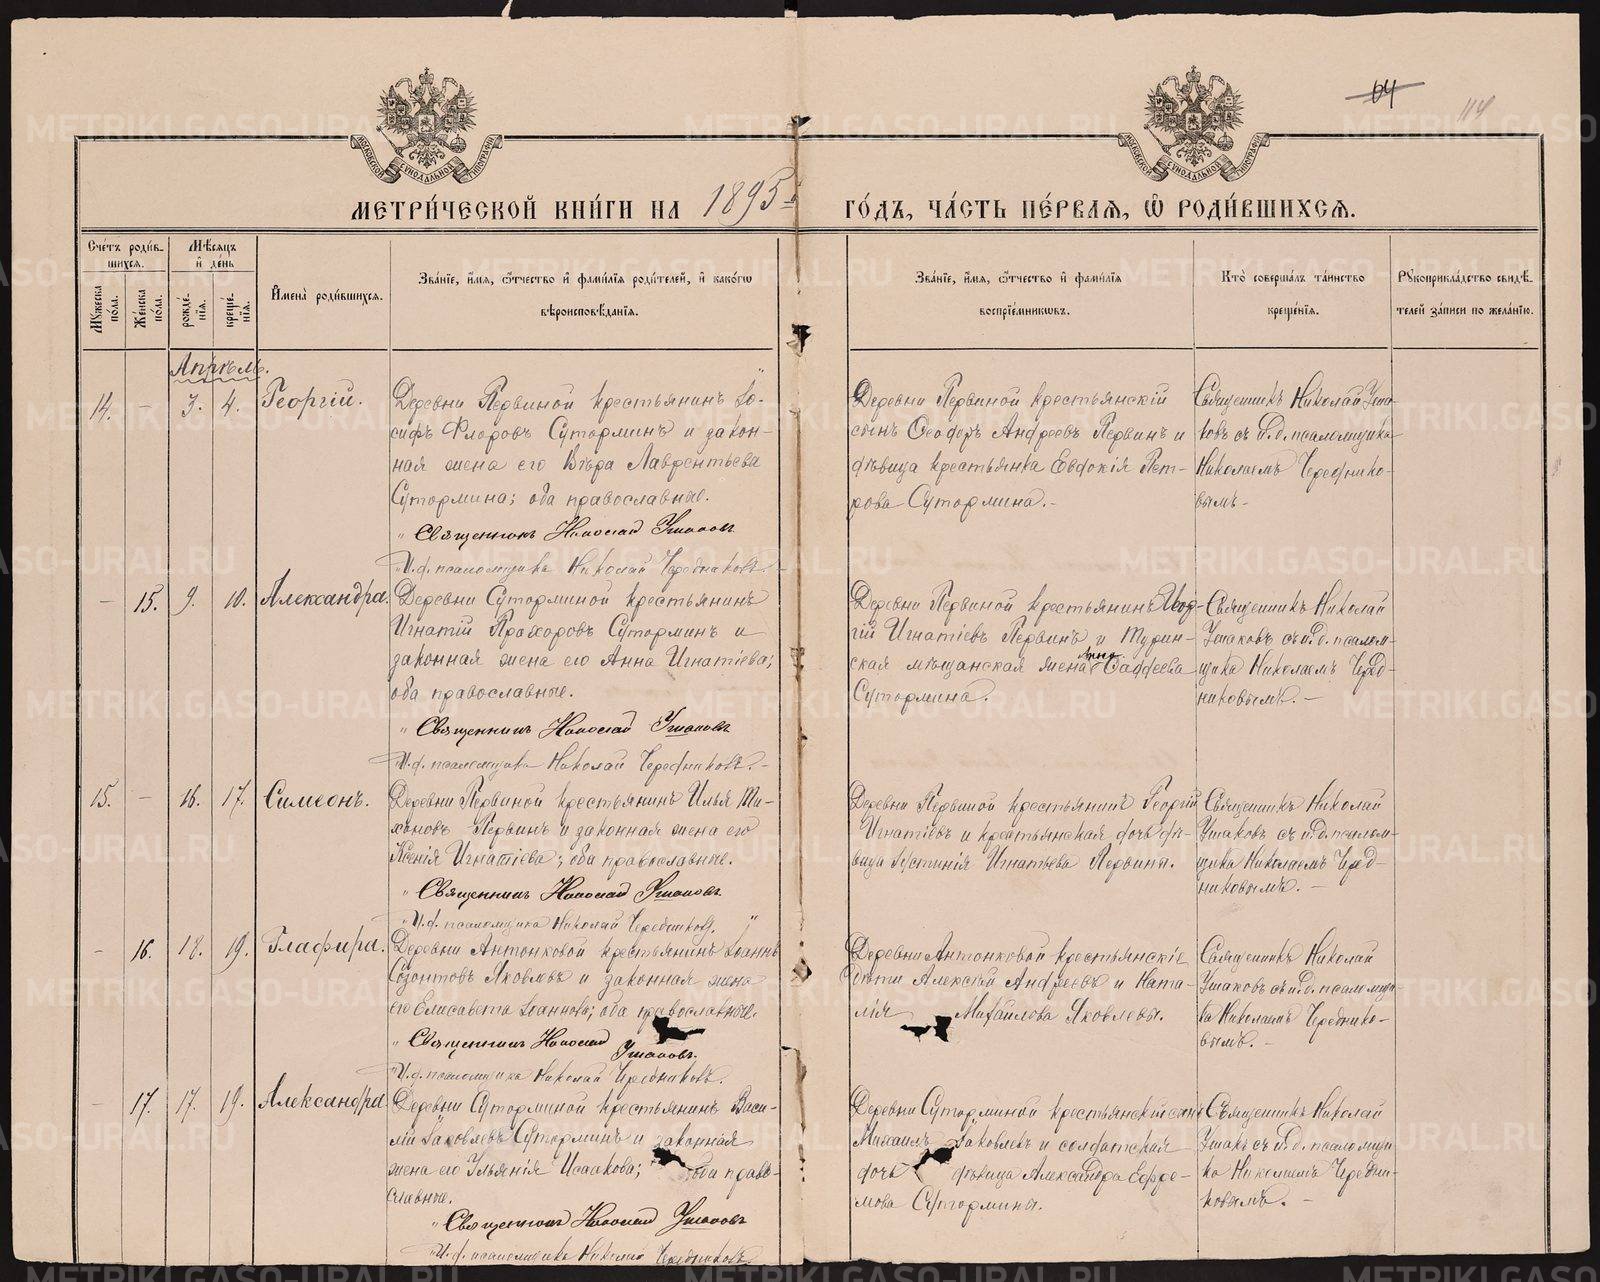 64
114
МОСКОВСКОЙ СѴНОДАЛЬНОЙ ТИПОГРАФІИ
МОСКОВСКОЙ СѴНОДАЛЬНОЙ ТИПОГРАФІИ
МЕТРИ́ЧЕСКОЙ КНИ́ГИ НА 1895 ГО́ДЪ, ЧА́СТЬ ПЕ́РВАѦ, Ѽ РОДИ́ВШИХСѦ.
Сче́тъ роди́в-
шихсѧ.
Мꙋжеска по́ла.
Же́нска по́ла.
Мѣсѧцъ
и҆ де́нь
рожде́-
нїѧ.
креще́-
нїѧ.
И҆мена̀ роди́вшихсѧ.
Зва́нїе, и҆́мѧ, ѻ҆́тчество и҆ фами́лїѧ роди́телей, и҆ како́гѡ
вѣроисповѣ́данїѧ.
Зва́нїе, и҆́мѧ, ѻ҆́тчество и҆ фами́лїѧ
воспрїе́мникѡвъ.
Кто̀ соверша́лъ та́инство
креще́нїѧ.
Рꙋкоприкла́дство свидѣ́-
телей за́писи по жела́нїю.
Апрѣль.
14. - 3. 4. Георгій.
Деревни Первиной крестьянинъ Іо-
сифъ Флоровъ Суторминъ и закон-
ная жена его Вѣра Лаврентьева
Сутормина; оба православные.
Священникъ Николай Ушаковъ
И.д. псаломщика Николай Чередниковъ.
Деревни Первиной крестьянскій
сынъ Ѳеодоръ Андреевъ Первинъ и
дѣвица крестьянка Евдокія Пет-
рова Сутормина.-
Священникъ Николай Уша-
ковъ съ и.д. псаломщика
Николаемъ Череднико-
вымъ-
- 15. 9. 10. Александра.
Деревни Суторминой крестьянинъ
Игнатій Прохоровъ Суторминъ и
законная жена его Анна Игнатіева;
оба православные.
Священникъ Николай Ушаковъ
И.д. псаломщика Николай Чередниковъ.-
Деревни Первиной крестьянинъ Геор-
гій Игнатіевъ Первинъ и Турин-
ская мѣщанская жена Анна Ѳаддеева
Сутормина.
Священникъ Николай
Ушаковъ съ и.д. псалом-
щика Николаемъ Черед-
никовымъ.-
15. - 16. 17. Симеонъ.
Деревни Первиной крестьянинъ Илья Ти-
хоновъ Первинъ и законная жена его
Ксенія Игнатіева; оба православные.
Священникъ Николай Ушаковъ
И.д. псаломщика Николай Чередниковъ.
Деревни Первиной крестьянинъ Георгій
Игнатіевъ и крестьянская дочь дѣ-
вица Іустинія Игнатьева Первины.
Священникъ Николай
Ушаковъ съ и.д. псалом-
щика Николаемъ Черед-
никовымъ.-
- 16. 18. 19. Глафира.
Деревни Антонковой крестьянинъ Іоаннъ
Созонтовъ Яковлевъ и законная жена
его Елисавета Іоаннова; оба православные.
Священникъ Николай Ушаковъ.
И.д. псаломщика Николай Чередниковъ.
Деревни Антонковой крестьянскіе
дѣти Алексѣй Андреевъ и Ната-
лія Михаилова Яковлевы.
Священникъ Николай
Ушаковъ съ и.д. псаломщи-
ка Николаемъ Череднико-
вымъ.-
- 17. 17. 19. Александра
Деревни Суторминой крестьянинъ Васи-
лій Іаковлевъ Суторминъ и законная
жена его Ульянія Исаакова; оба право-
славные.
Священникъ Николай Ушаковъ
И.д. псаломщика Николай Чередниковъ.
Деревни Суторминой крестьянскій сынъ
Михаилъ Іаковлевъ и солдатская
дочь дѣвица Александра Ефре-
мова Сутормины.
Священникъ Николай
Ушаковъ съ и.д. псаломщи-
ка Николаемъ Чередни-
ковымъ.-
METRIKI.GASO-URAL.RU